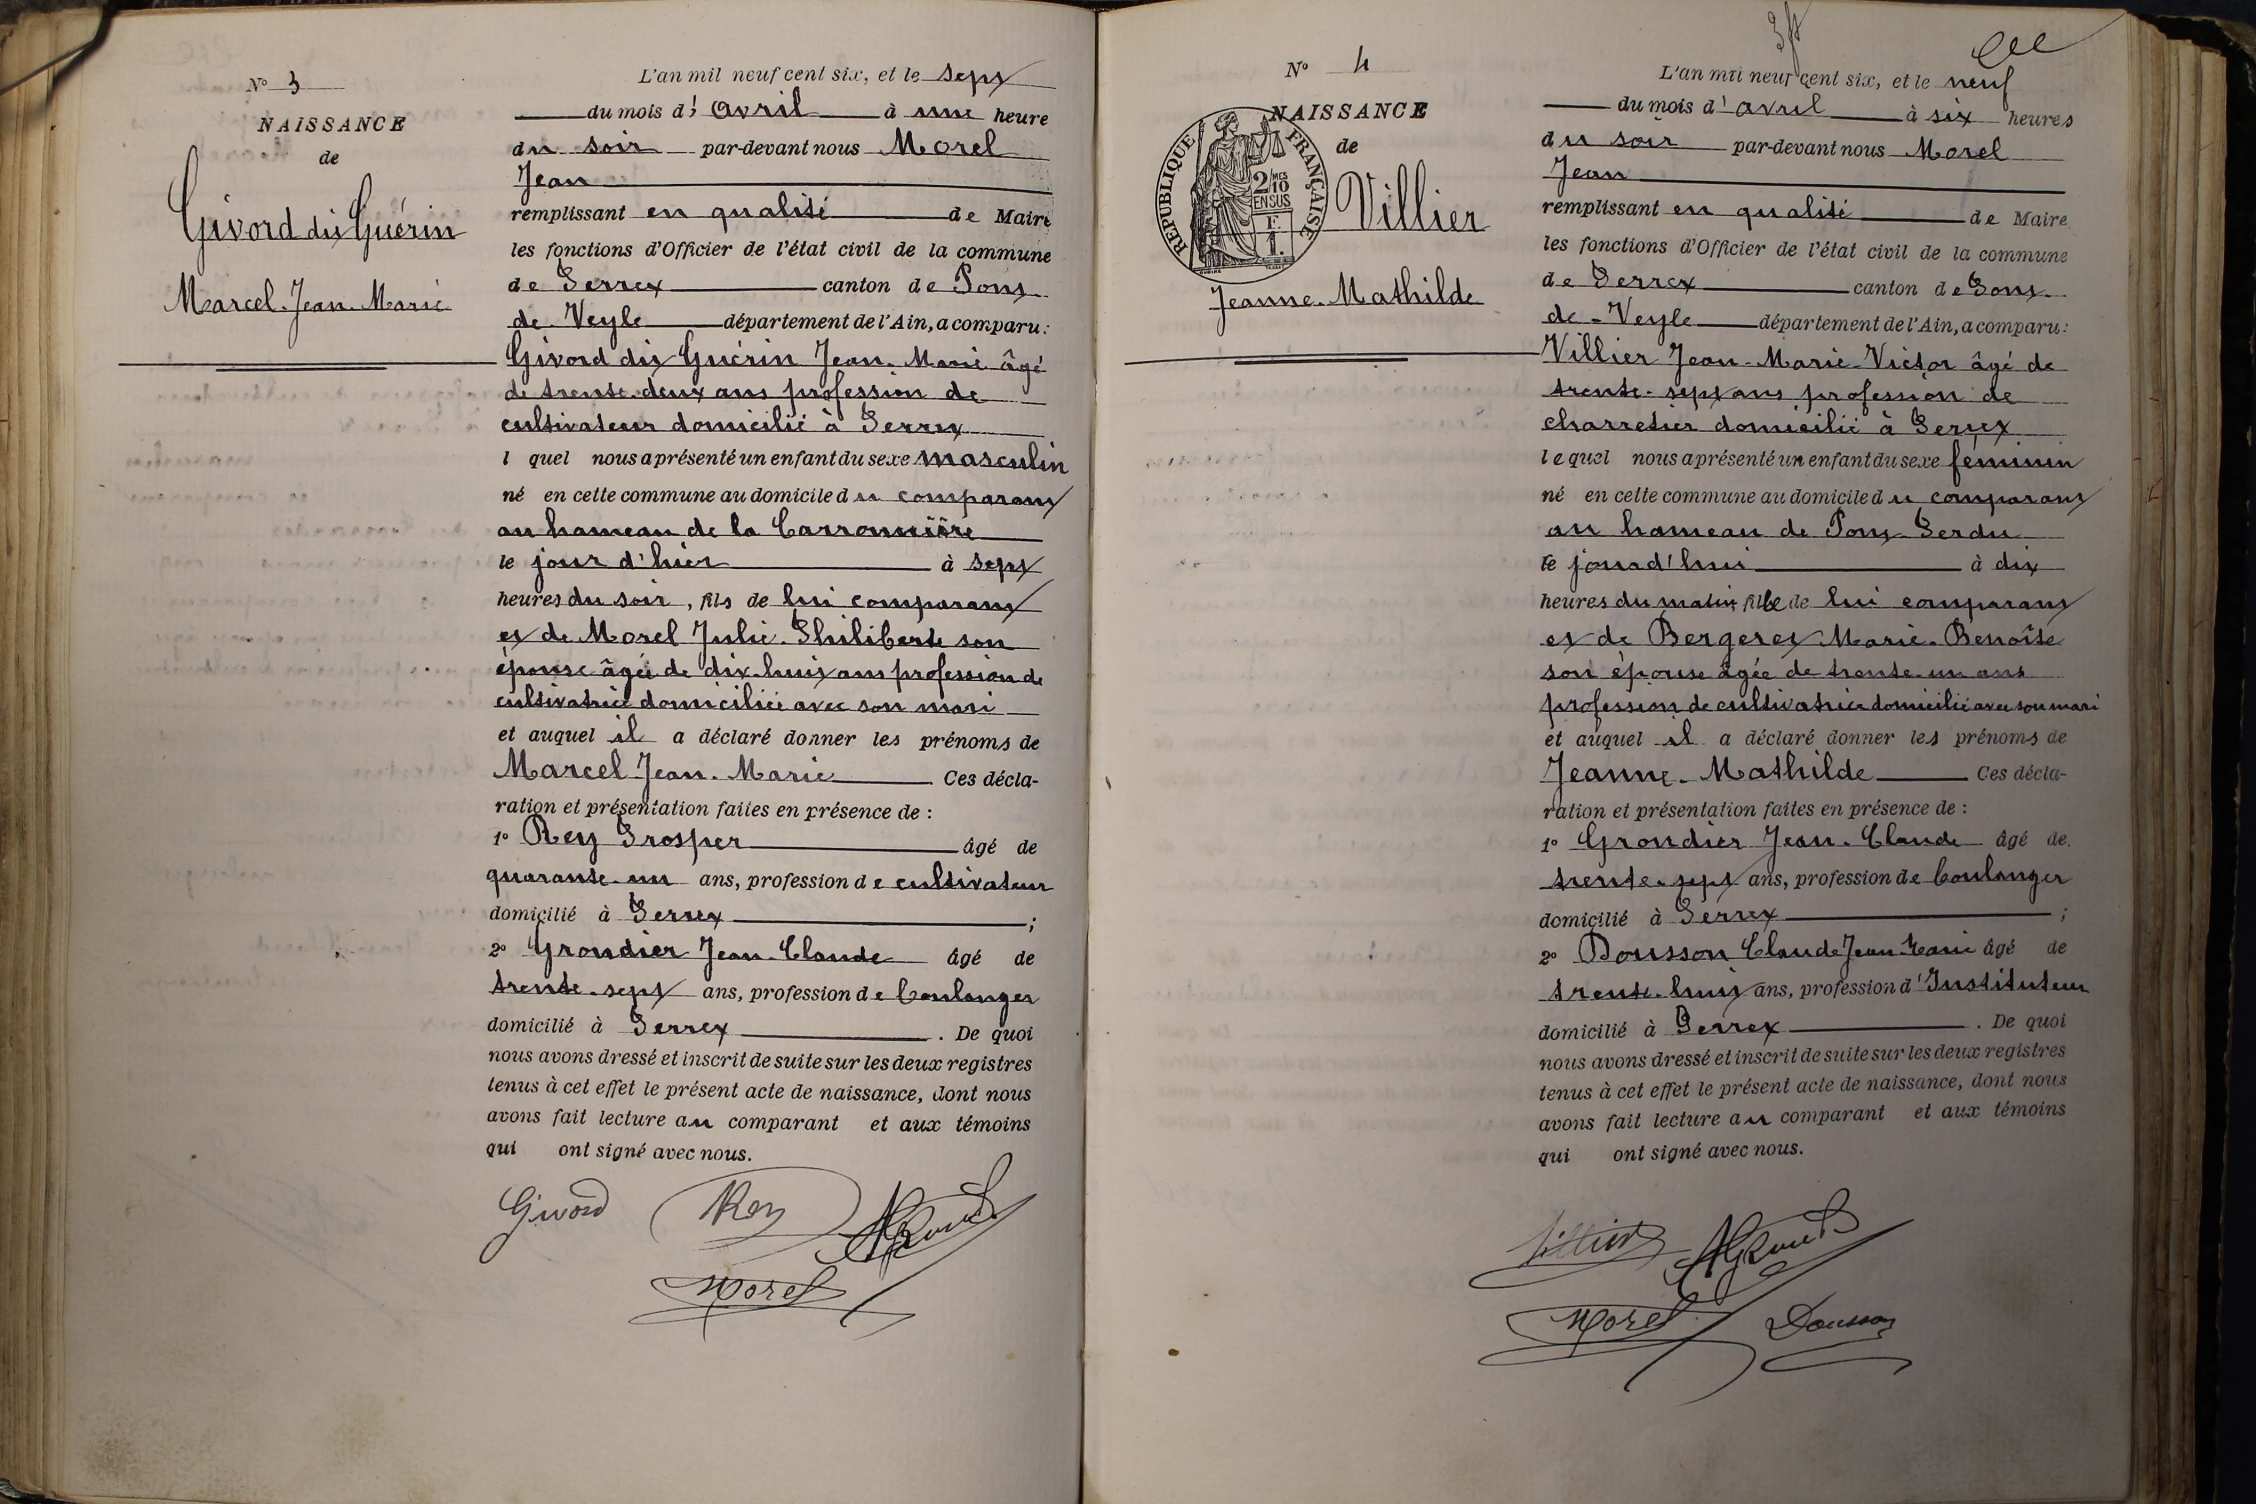 N° 3
NAISSANCE
de
Givord dit Guérin
Marcel-Jean-Marie
L'an mil neuf cent six, et le sept
du mois d' Avril à une heure
du soir par-devant nous Morel
Jean
remplissant en qualité de Maire
les fonctions d'Officier de l'état civil de la commune
de Perrex canton de Pont
de Veyle département de l'Ain, a comparu :
Givord dit Guérin Jean-Marie âgé
de trente-deux ans profession de
cultivateur domicilié à Perrex
l quel nous a présenté un enfant du sexe masculin
né en cette commune au domicile du comparant
au hameau de la Carronnière
le jour d'hier à sept
heures du soir, fils de lui comparant
et de Morel Julie-Philiberte son
épouse âgée de dix-huit ans profession de
cultivatrice domiciliée avec son mari
et auquel il a déclaré donner les prénoms de
Marcel Jean-Marie Ces décla-
ration et présentation faites en présence de :
1° Rey Prosper âgé de
quarante-un ans, profession de cultivateur
domicilié à Perrex ;
2° Grondier Jean-Claude âgé de
trente-sept ans, profession de boulanger
domicilié à Perrex . De quoi
nous avons dressé et inscrit de suite sur les deux registres
tenus à cet effet le présent acte de naissance, dont nous
avons fait lecture au comparant et aux témoins
qui ont signé avec nous.
Givord Rey
Morel
N° 4
NAISSANCE
de
RÉPUBLIQUE FRANÇAISE
2/10 MES
EN SUS
F.
1.
Villier
Jeanne-Mathilde
L'an mil neuf cent six, et le neuf
du mois d' avril à six heures
du soir par-devant nous Morel
Jean
remplissant en qualité de Maire
les fonctions d'Officier de l'état civil de la commune
de Perrex canton de Pont
de-Veyle département de l'Ain, a comparu :
Villier Jean-Marie-Victor âgé de
trente-sept ans profession de
charretier domicilié à Perrex
lequel nous a présenté un enfant du sexe féminin
né en cette commune au domicile du comparant
au hameau de Pont-Perdu
le jourd'hui à dix
heures du matin fille de lui comparant
et de Bergeret Marie-Benoîte
son épouse âgée de trente-un ans
profession de cultivatrice domiciliée avec son mari
et auquel il a déclaré donner les prénoms de
Jeanne-Mathilde Ces décla-
ration et présentation faites en présence de :
1° Grondier Jean-Claude âgé de
trente-sept ans, profession de boulanger
domicilié à Perrex ;
2° Dousson Claude Jean Marie âgé de
trente-huit ans, profession d'Instituteur
domicilié à Perrex . De quoi
nous avons dressé et inscrit de suite sur les deux registres
tenus à cet effet le présent acte de naissance, dont nous
avons fait lecture au comparant et aux témoins
qui ont signé avec nous.
Villier
Morel Dousson